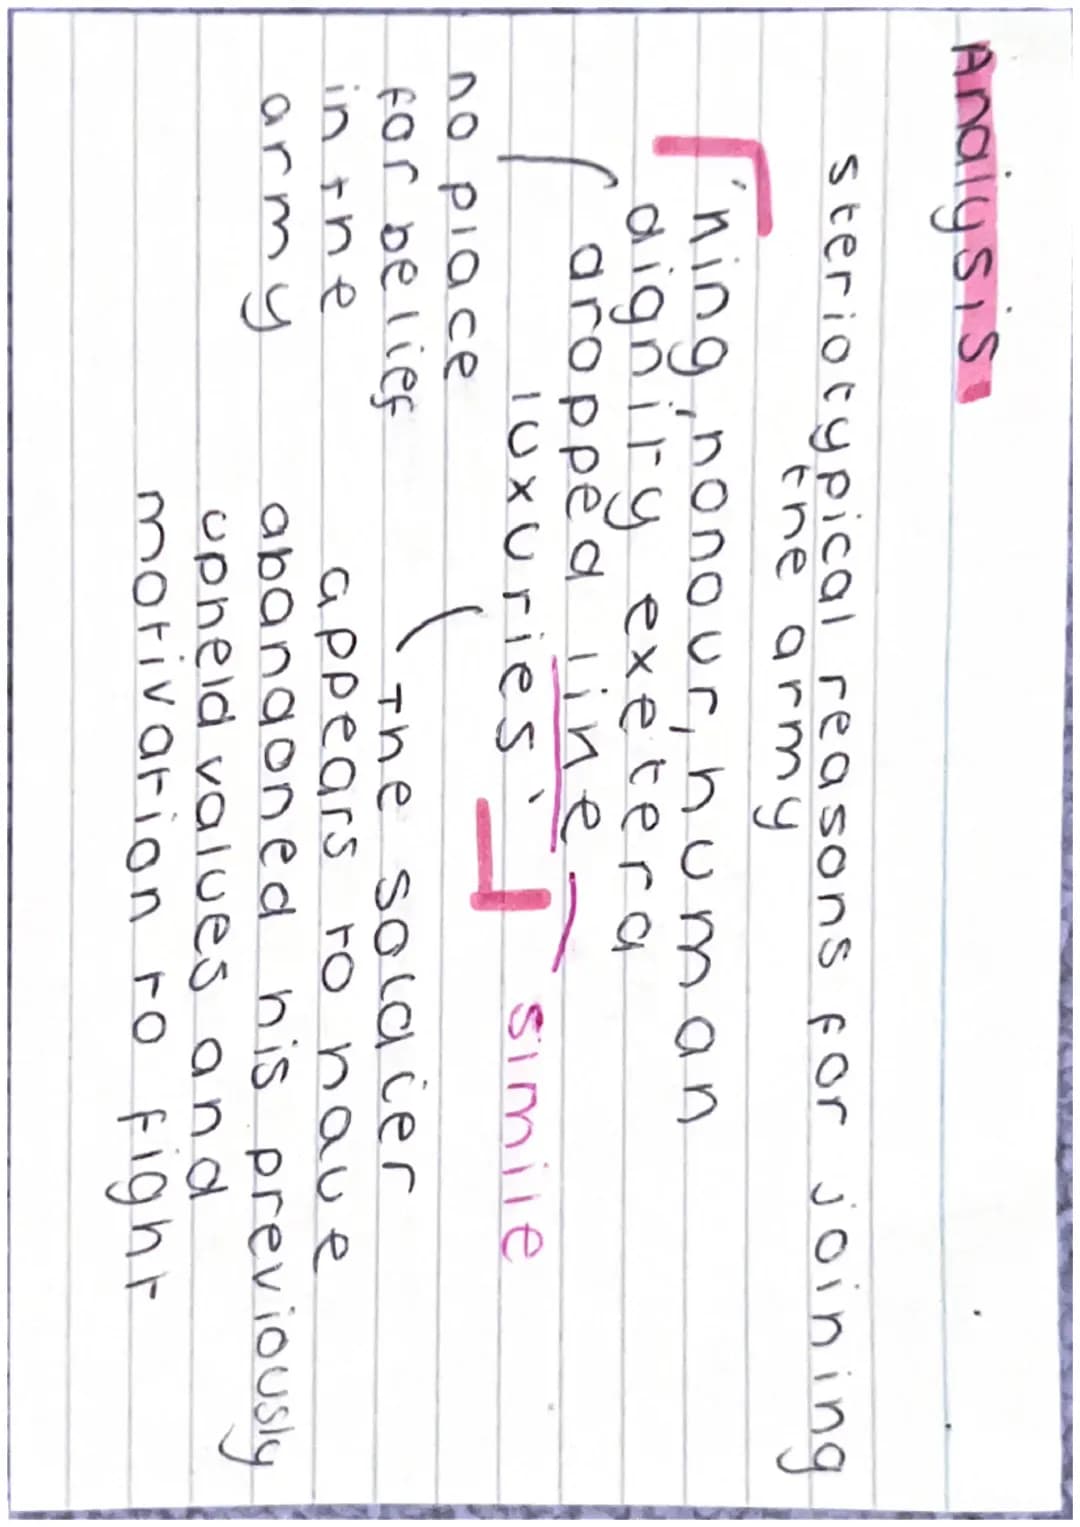 Analysis
steriotypical reasons for joining
the army
'King, honour, human
dignity exetera
dropped like
luxuries'
simile
no place
for belief
in the
army
The soldier
appears to have
abandoned his previously
upheld values and
motivation to fight